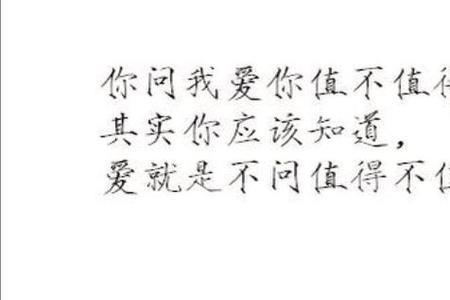 你问我爱你值不值
其实你应该知道，
爱就是不问值得不